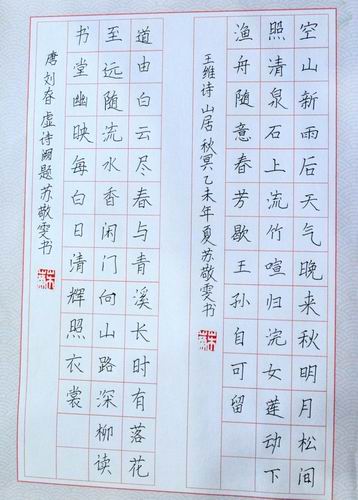 空山新雨后天气晚来秋明月松间
照清泉石上流竹喧归浣女莲动下
渔舟随意春芳歇王孙自可留
王维诗山居秋冥乙未年夏苏敬雯书
道由白云尽春与青溪长时有落花
至远随流水香闲门向山路深柳读
书堂幽映每白日清辉照衣裳
唐刘昚虚诗阙题苏敬雯书